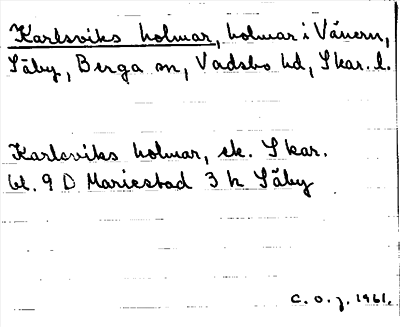 Karlsviks holmar, holmar i Vänern,
Säby, Berga sn, Vadsbo hd, Skar. l.
Karlsviks holmar, ek. Skar.
bl. 9 D Mariestad 3 h Säby
C. O. J. 1961.